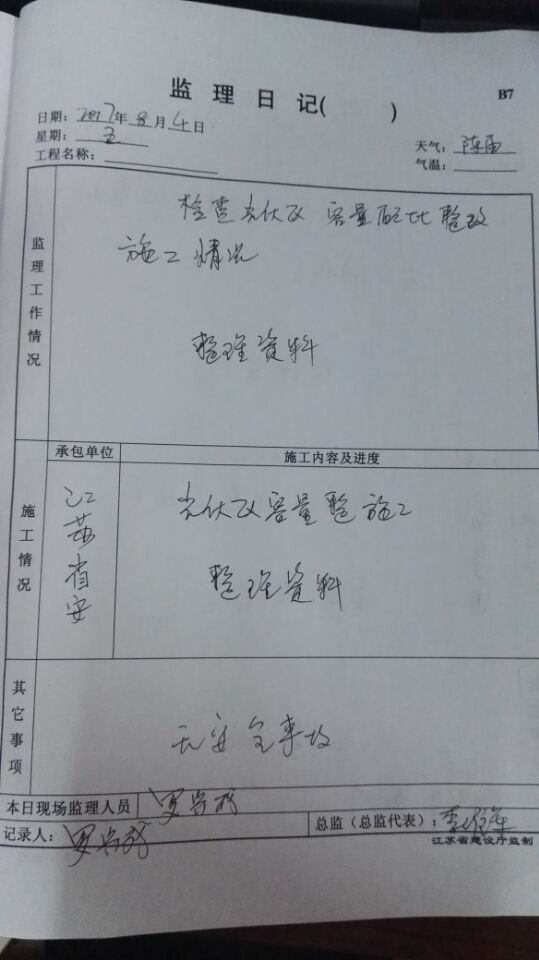 监理日记( )
B7
日期: 2017年8月4日
星期: 五
天气: 阵雨
工程名称:
气温:
监理工作情况
检查光伏区 容量配比整改
施工情况
整理资料
施工情况
承包单位
施工内容及进度
江苏省安
光伏区容量整 施工
整理资料
其它事项
无安全事故
本日现场监理人员
记录人:
总监(总监代表):
江苏省建设厅监制